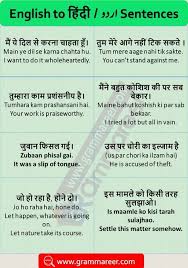 English to हिंदी / اردو Sentences
मैं ये दिल से करना चाहता हूँ।
Main ye dil se karna chahta hu.
I want to do it wholeheartedly.
तुम मेरे आगे नहीं टिक सकते ।
Tum mere aagen nahi tik sakte.
You can't stand against me.
तुम्हारा काम प्रशंसनीय है।
Tumhara kam prashansani hai.
Your work is praiseworthy.
मैंने बहुत कोशिश की पर सब बेकार।
Maine bahut koshish ki par sab bekaar.
I tried a lot but all in vain.
जुबान फिसल गई।
Zubaan phisal gai.
It was a slip of tongue.
उस पर चोरी का इल्जाम है
(us par chorika Ilzam hai)
He is accused of theft.
जो हो रहा है, होने दो।
Jo ho raha hai, hone do.
Let happen, whatever is going on.
Let nature take its course.
इस मामले को किसी तरह सुलझाओ।
Is maamle ko kisi tarah sulajhao.
Settle this matter somehow.
www.grammareer.com